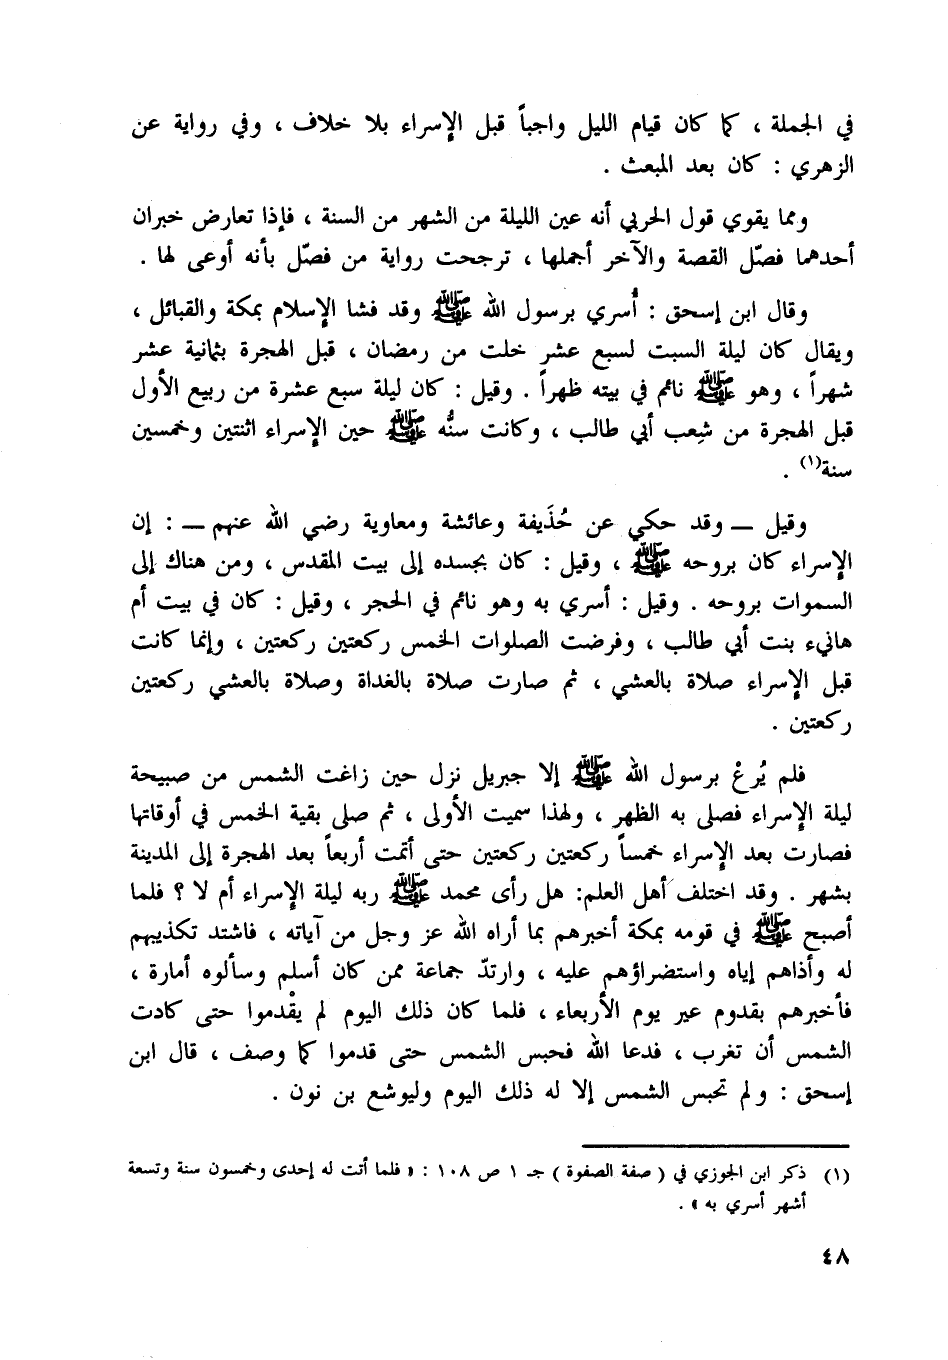 في الجملة ، كما كان قيام الليل واجباً قبل الإسراء بلا خلاف ، وفي رواية عن
الزهري : كان بعد المبعث .
ومما يقوي قول الحربي أنه عين الليلة من الشهر من السنة ، فإذا تعارض خبران
أحدهما فصّل القصة والآخر أجملها ، ترجحت رواية من فصّل بأنه أوعى لها .
وقال ابن إسحق : أُسري برسول الله ﷺ وقد فشا الإسلام بمكة والقبائل ،
ويقال كان ليلة السبت لسبع عشر خلت من رمضان ، قبل الهجرة بثمانية عشر
شهراً ، وهو ﷺ نائم في بيته ظهراً . وقيل : كان ليلة سبع عشرة من ربيع الأول
قبل الهجرة من شِعب أبي طالب ، وكانت سنُّه ﷺ حين الإسراء اثنتين وخمسين
سنة(١) .
وقيل ــ وقد حكي عن حُذَيفة وعائشة ومعاوية رضي الله عنهم ــ : إن
الإسراء كان بروحه ﷺ ، وقيل : كان بجسده إلى بيت المقدس ، ومن هناك إلى
السموات بروحه . وقيل : أسري به وهو نائم في الحجر ، وقيل : كان في بيت أم
هانيء بنت أبي طالب ، وفرضت الصلوات الخمس ركعتين ركعتين ، وإنما كانت
قبل الإسراء صلاة بالعشي ، ثم صارت صلاة بالغداة وصلاة بالعشي ركعتين
ركعتين .
فلم يُرعْ برسول الله ﷺ إلا جبريل نزل حين زاغت الشمس من صبيحة
ليلة الإسراء فصلى به الظهر ، ولهذا سميت الأولى ، ثم صلى بقية الخمس في أوقاتها
فصارت بعد الإسراء خمساً ركعتين ركعتين حتى أتمت أربعاً بعد الهجرة إلى المدينة
بشهر . وقد اختلف أهل العلم: هل رأى محمد ﷺ ربه ليلة الإسراء أم لا ؟ فلما
أصبح ﷺ في قومه بمكة أخبرهم بما أراه الله عز وجل من آياته ، فاشتد تكذيبهم
له وأذاهم إياه واستضراؤهم عليه ، وارتدّ جماعة ممن كان أسلم وسألوه أمارة ،
فأخبرهم بقدوم عير يوم الأربعاء ، فلما كان ذلك اليوم لم يقْدموا حتى كادت
الشمس أن تغرب ، فدعا الله فحبس الشمس حتى قدموا كما وصف ، قال ابن
إسحق : ولم تحبس الشمس إلا له ذلك اليوم وليوشع بن نون .
(١) ذكر ابن الجوزي في ( صفة الصفوة ) جـ ١ ص ١٠٨ : « فلما أتت له إحدى وخمسون سنة وتسعة
أشهر أسري به » .
٤٨